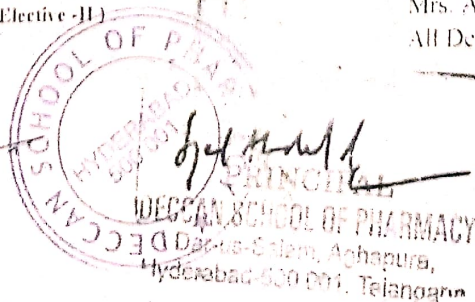 Elective -II)
Mrs. A
All De
DECCAN SCHOOL OF PHAR
HYDERABAD
500 001
PRINCIPAL
DECCAN SCHOOL OF PHARMACY
Dar-us-Salam, Aghapura,
Hyderabad-500 001, Telangana